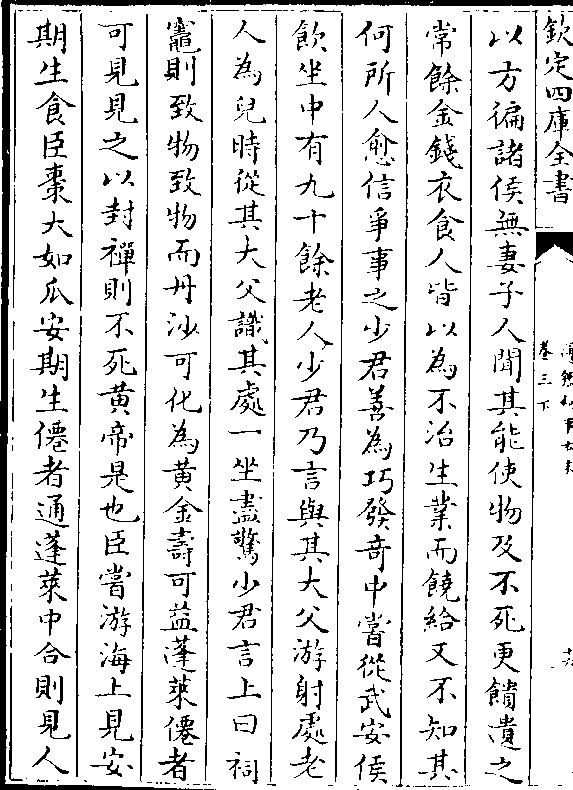 欽定四庫全書
卷三下
以方徧諸侯無妻子人聞其能使物及不死更饋遺之
常餘金錢衣食人皆以為不治生業而饒給又不知其
何所人愈信爭事之少君善為巧發奇中嘗從武安侯
飲坐中有九十餘老人少君乃言與其大父游射處老
人為兒時從其大父識其處一坐盡驚少君言上曰祠
竈則致物致物而丹沙可化為黃金壽可益蓬萊僊者
可見見之以封禪則不死黃帝是也臣嘗游海上見安
期生食臣棗大如瓜安期生僊者通蓬萊中合則見人